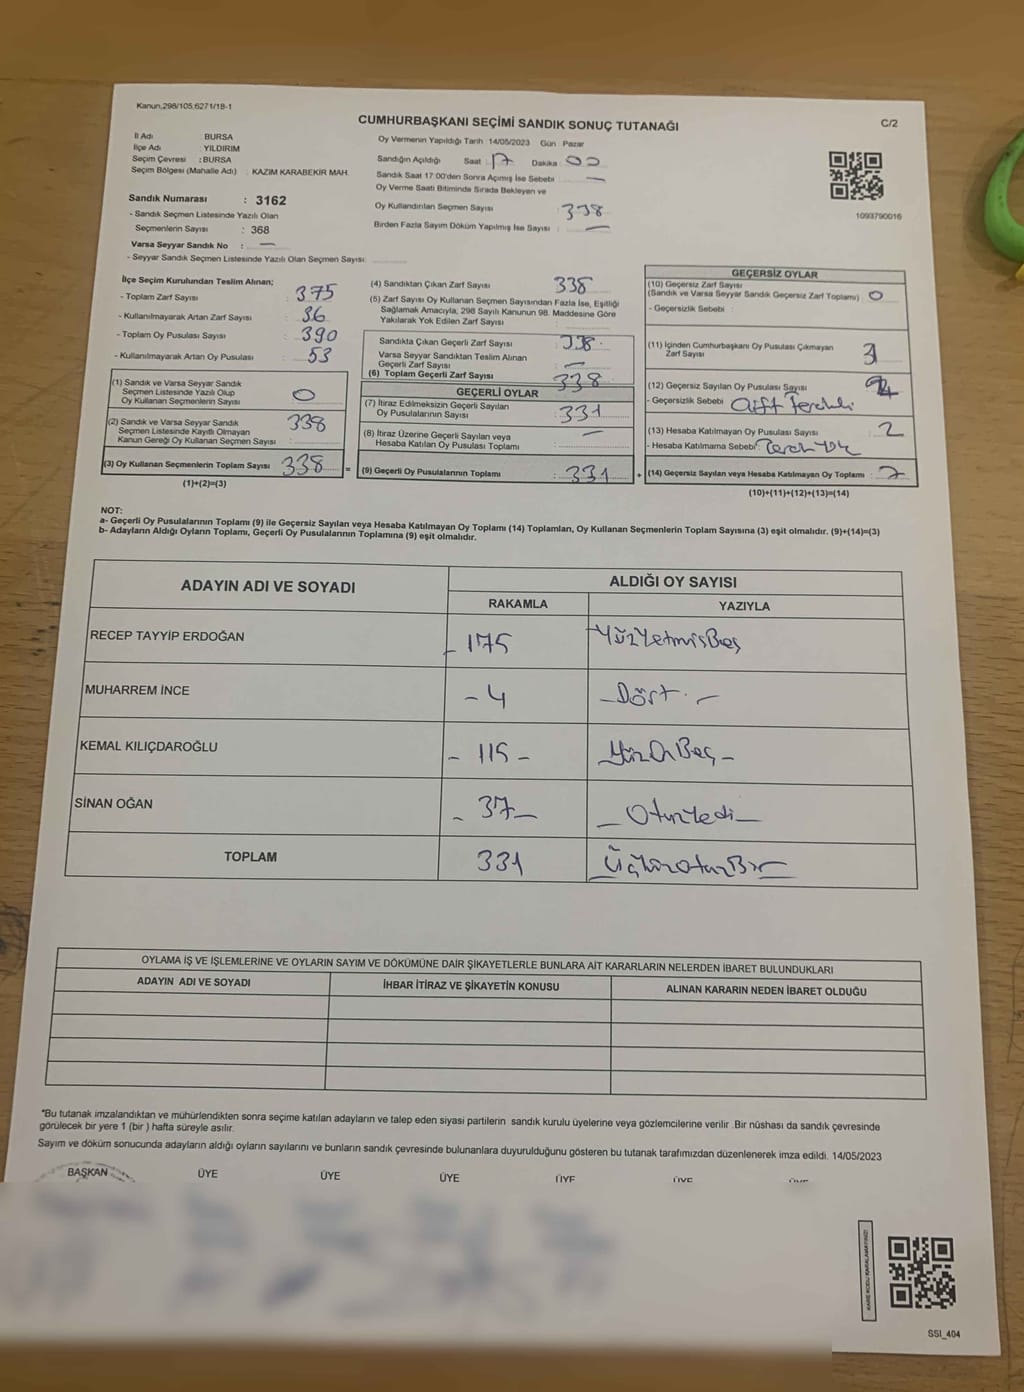 Kanun,298/105;6271/18-1
CUMHURBAŞKANI SEÇİMİ SANDIK SONUÇ TUTANAĞI
C/2
İl Adı BURSA
İlçe Adı YILDIRIM
Seçim Çevresi : BURSA
Seçim Bölgesi (Mahalle Adı) : KAZIM KARABEKİR MAH.
Sandık Numarası : 3162
- Sandık Seçmen Listesinde Yazılı Olan
Seçmenlerin Sayısı : 368
Varsa Seyyar Sandık No : —
- Seyyar Sandık Seçmen Listesinde Yazılı Olan Seçmen Sayısı:
Oy Vermenin Yapıldığı Tarih :14/05/2023 Gün Pazar
Sandığın Açıldığı Saat : 17 Dakika 00
Sandık Saat 17:00'den Sonra Açımış İse Sebebi : —
Oy Verme Saati Bitiminde Sırada Bekleyen ve
Oy Kullandırılan Seçmen Sayısı : 338
Birden Fazla Sayım Döküm Yapılmış İse Sayısı : —
1093790016
İlçe Seçim Kurulundan Teslim Alınan;
- Toplam Zarf Sayısı : 375
- Kullanılmayarak Artan Zarf Sayısı : 36
- Toplam Oy Pusulası Sayısı : 390
- Kullanılmayarak Artan Oy Pusulası : 53
(1) Sandık ve Varsa Seyyar Sandık
Seçmen Listesinde Yazılı Olup
Oy Kullanan Seçmenlerin Sayısı : 0
(2) Sandık ve Varsa Seyyar Sandık
Seçmen Listesinde Kayıtlı Olmayan
Kanun Gereği Oy Kullanan Seçmen Sayısı : 338
(3) Oy Kullanan Seçmenlerin Toplam Sayısı : 338 =
(1)+(2)=(3)
(4) Sandıktan Çıkan Zarf Sayısı : 338
(5) Zarf Sayısı Oy Kullanan Seçmen Sayısından Fazla İse, Eşitliği
Sağlamak Amacıyla, 298 Sayılı Kanunun 98. Maddesine Göre
Yakılarak Yok Edilen Zarf Sayısı :
Sandıkta Çıkan Geçerli Zarf Sayısı : 338
Varsa Seyyar Sandıktan Teslim Alınan
Geçerli Zarf Sayısı : —
(6) Toplam Geçerli Zarf Sayısı : 338
GEÇERLİ OYLAR
(7) İtiraz Edilmeksizin Geçerli Sayılan
Oy Pusulalarının Sayısı : 331
(8) İtiraz Üzerine Geçerli Sayılan veya
Hesaba Katılan Oy Pusulası Toplamı : —
(9) Geçerli Oy Pusulalarının Toplamı : 331 +
GEÇERSİZ OYLAR
(10) Geçersiz Zarf Sayısı
(Sandık ve Varsa Seyyar Sandık Geçersiz Zarf Toplamı) : 0
- Geçersizlik Sebebi :
(11) İçinden Cumhurbaşkanı Oy Pusulası Çıkmayan
Zarf Sayısı
(12) Geçersiz Sayılan Oy Pusulası Sayısı : 4
- Geçersizlik Sebebi : Çift Tercihli
(13) Hesaba Katılmayan Oy Pusulası Sayısı : 2
- Hesaba Katılmama Sebebi: Tercih Yok
(14) Geçersiz Sayılan veya Hesaba Katılmayan Oy Toplamı : 7
(10)+(11)+(12)+(13)=(14)
NOT:
a- Geçerli Oy Pusulalarının Toplamı (9) ile Geçersiz Sayılan veya Hesaba Katılmayan Oy Toplamı (14) Toplamları, Oy Kullanan Seçmenlerin Toplam Sayısına (3) eşit olmalıdır. (9)+(14)=(3)
b- Adayların Aldığı Oyların Toplamı, Geçerli Oy Pusulalarının Toplamına (9) eşit olmalıdır.
ADAYIN ADI VE SOYADI ALDIĞI OY SAYISI
RAKAMLA YAZIYLA
RECEP TAYYİP ERDOĞAN - 175 YüzYetmişBeş
MUHARREM İNCE - 4 - Dört -
KEMAL KILIÇDAROĞLU - 115 - YüzOnBeş -
SİNAN OĞAN - 37 - - Otuzyedi -
TOPLAM 331 ÜçYüzotuzBir
OYLAMA İŞ VE İŞLEMLERİNE VE OYLARIN SAYIM VE DÖKÜMÜNE DAİR ŞİKAYETLERLE BUNLARA AİT KARARLARIN NELERDEN İBARET BULUNDUKLARI
ADAYIN ADI VE SOYADI İHBAR İTİRAZ VE ŞİKAYETİN KONUSU ALINAN KARARIN NEDEN İBARET OLDUĞU
*Bu tutanak imzalandıktan ve mühürlendikten sonra seçime katılan adayların ve talep eden siyasi partilerin sandık kurulu üyelerine veya gözlemcilerine verilir .Bir nüshası da sandık çevresinde
görülecek bir yere 1 (bir ) hafta süreyle asılır.
Sayım ve döküm sonucunda adayların aldığı oyların sayılarını ve bunların sandık çevresinde bulunanlara duyurulduğunu gösteren bu tutanak tarafımızdan düzenlenerek imza edildi. 14/05/2023
BAŞKAN ÜYE ÜYE ÜYE ÜYE ÜYE ÜYE
KARE KODU KARALAMAYINIZ!
SSİ_404